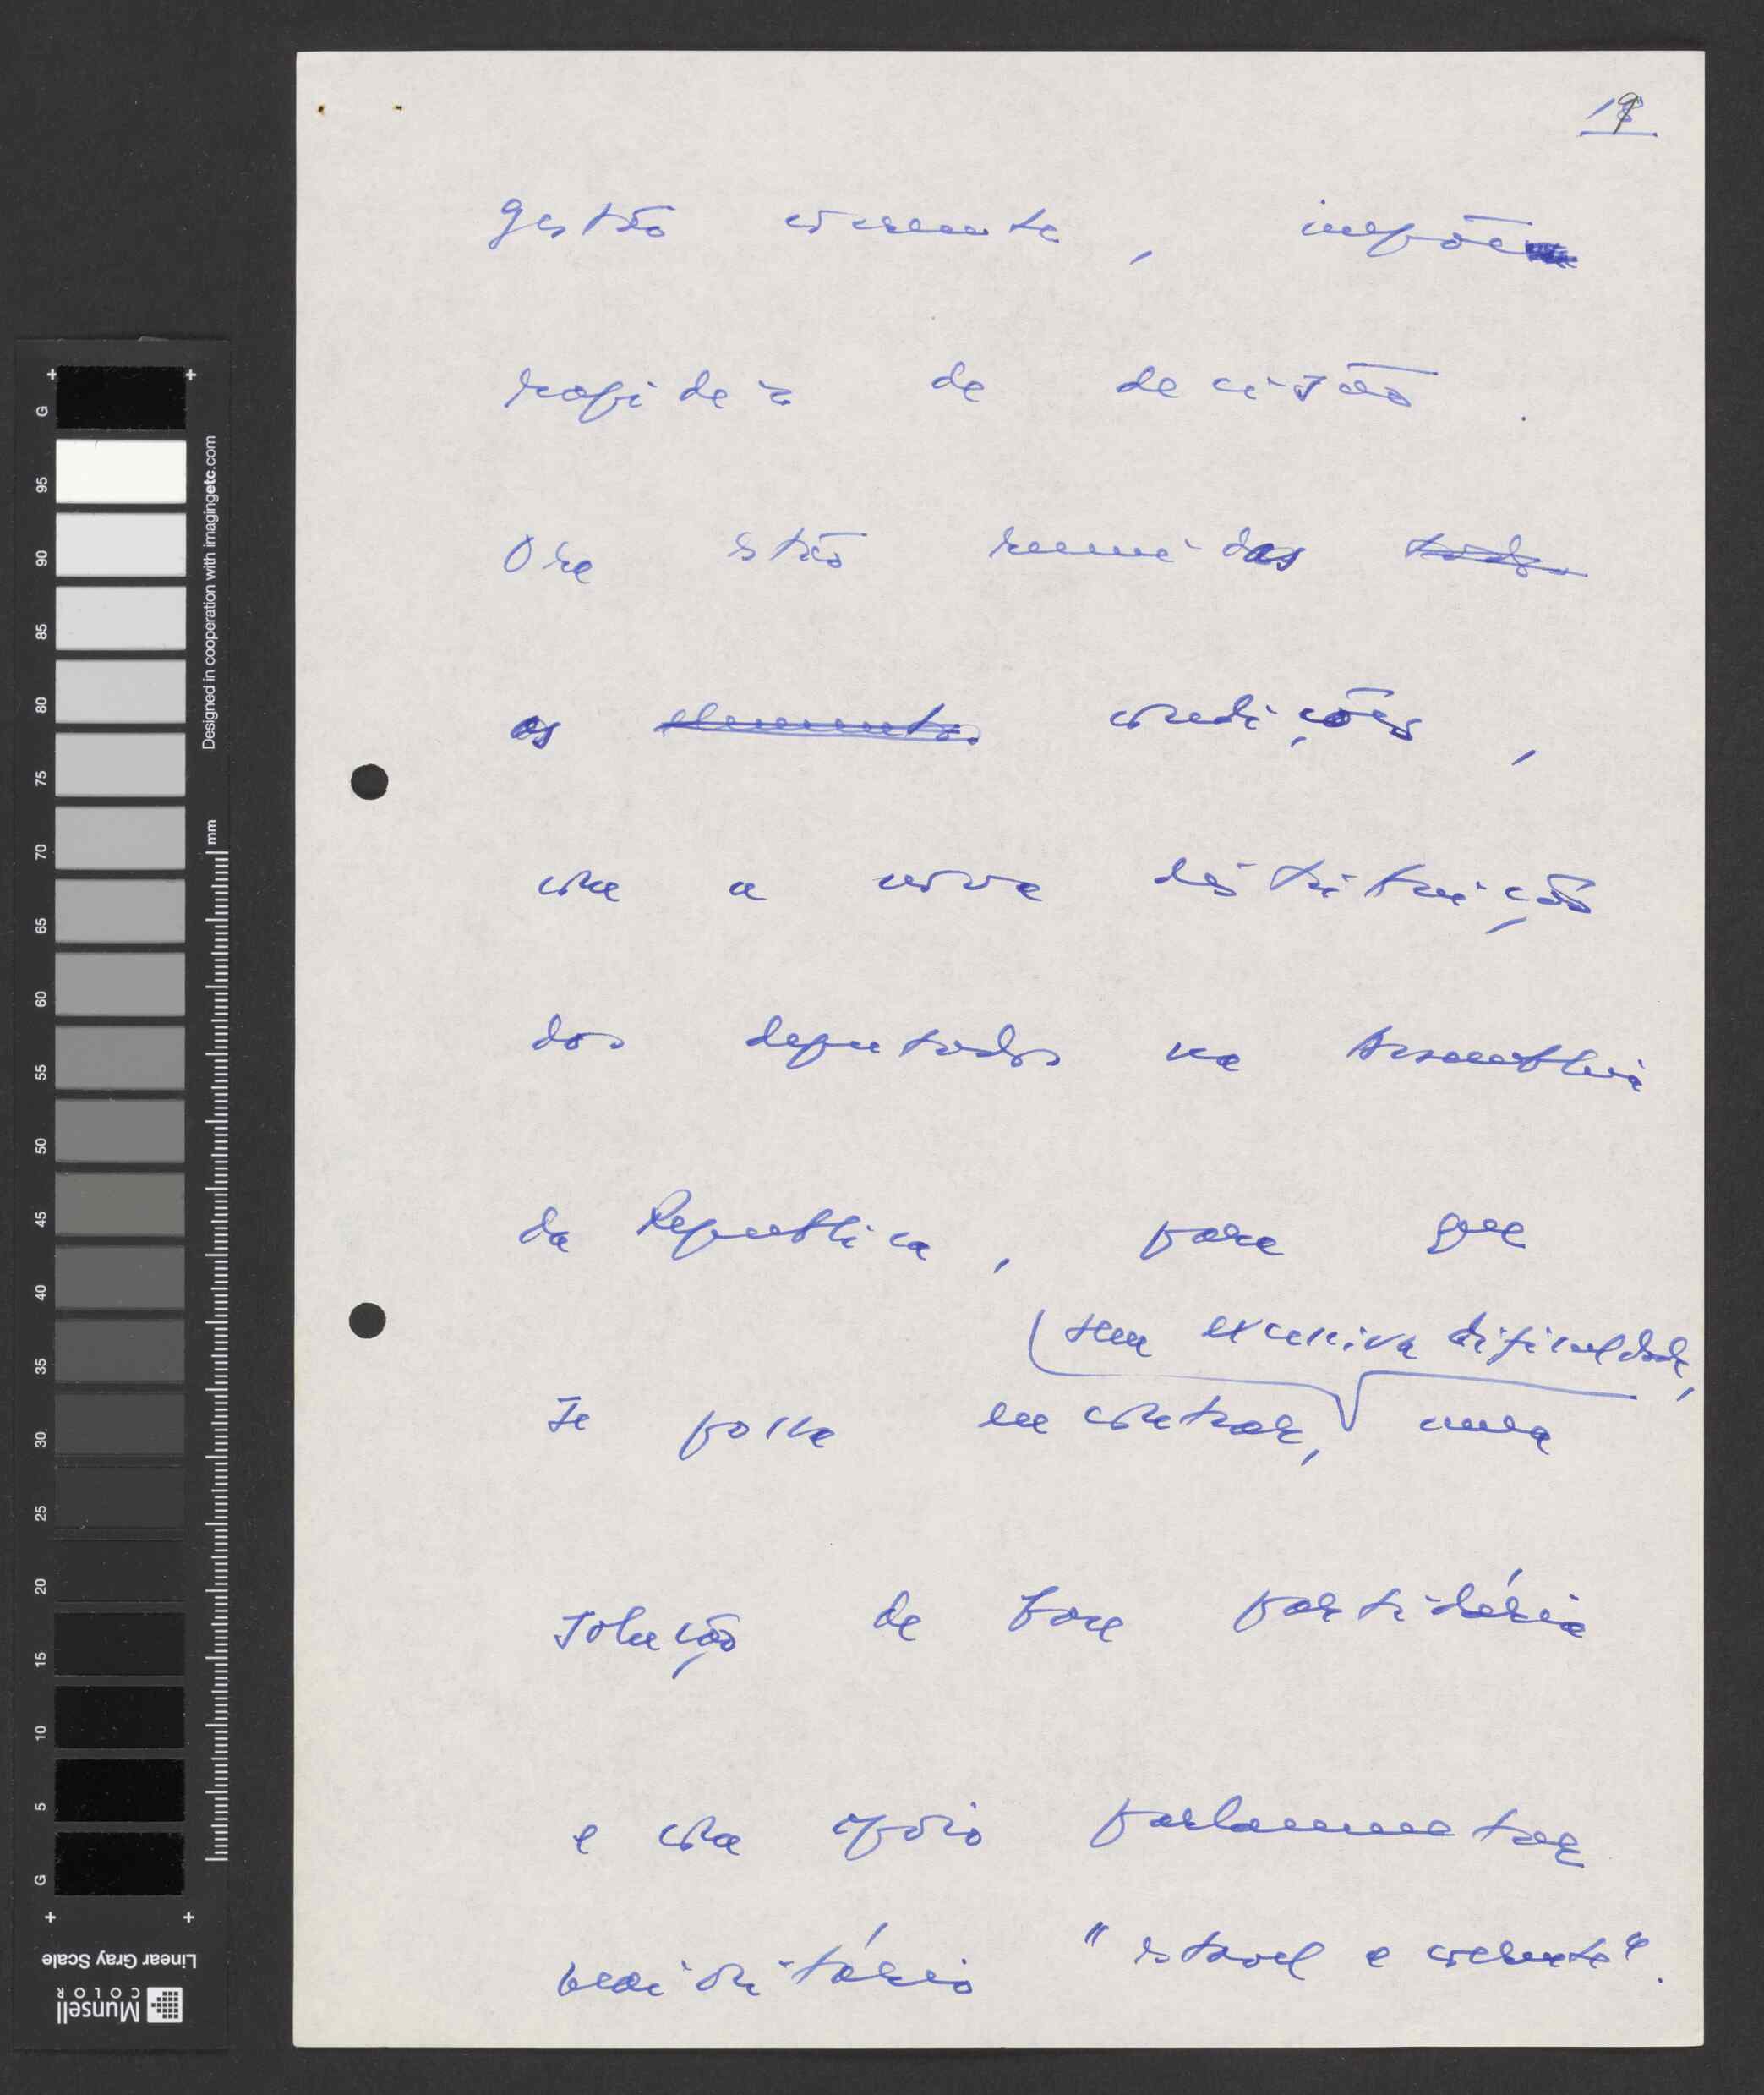 19
gestão corrente, impõe
rapidez de decisão.
Ora estão reunidas todos
as elementos condições,
com a nova distribuição
dos deputados na Assembleia
da Republica, para que
(sem excessiva dificuldade,
se possa encontrar, uma
solução de base partidária
e com apoio parlamentar
maioritário "estavel e coerente".
G 95 90 85 80 75 70 65 60 55 50 45 40 35 30 25 20 15 10 5 G
Designed in cooperation with imagingetc.com
mm
Linear Gray Scale
Munsell
COLOR